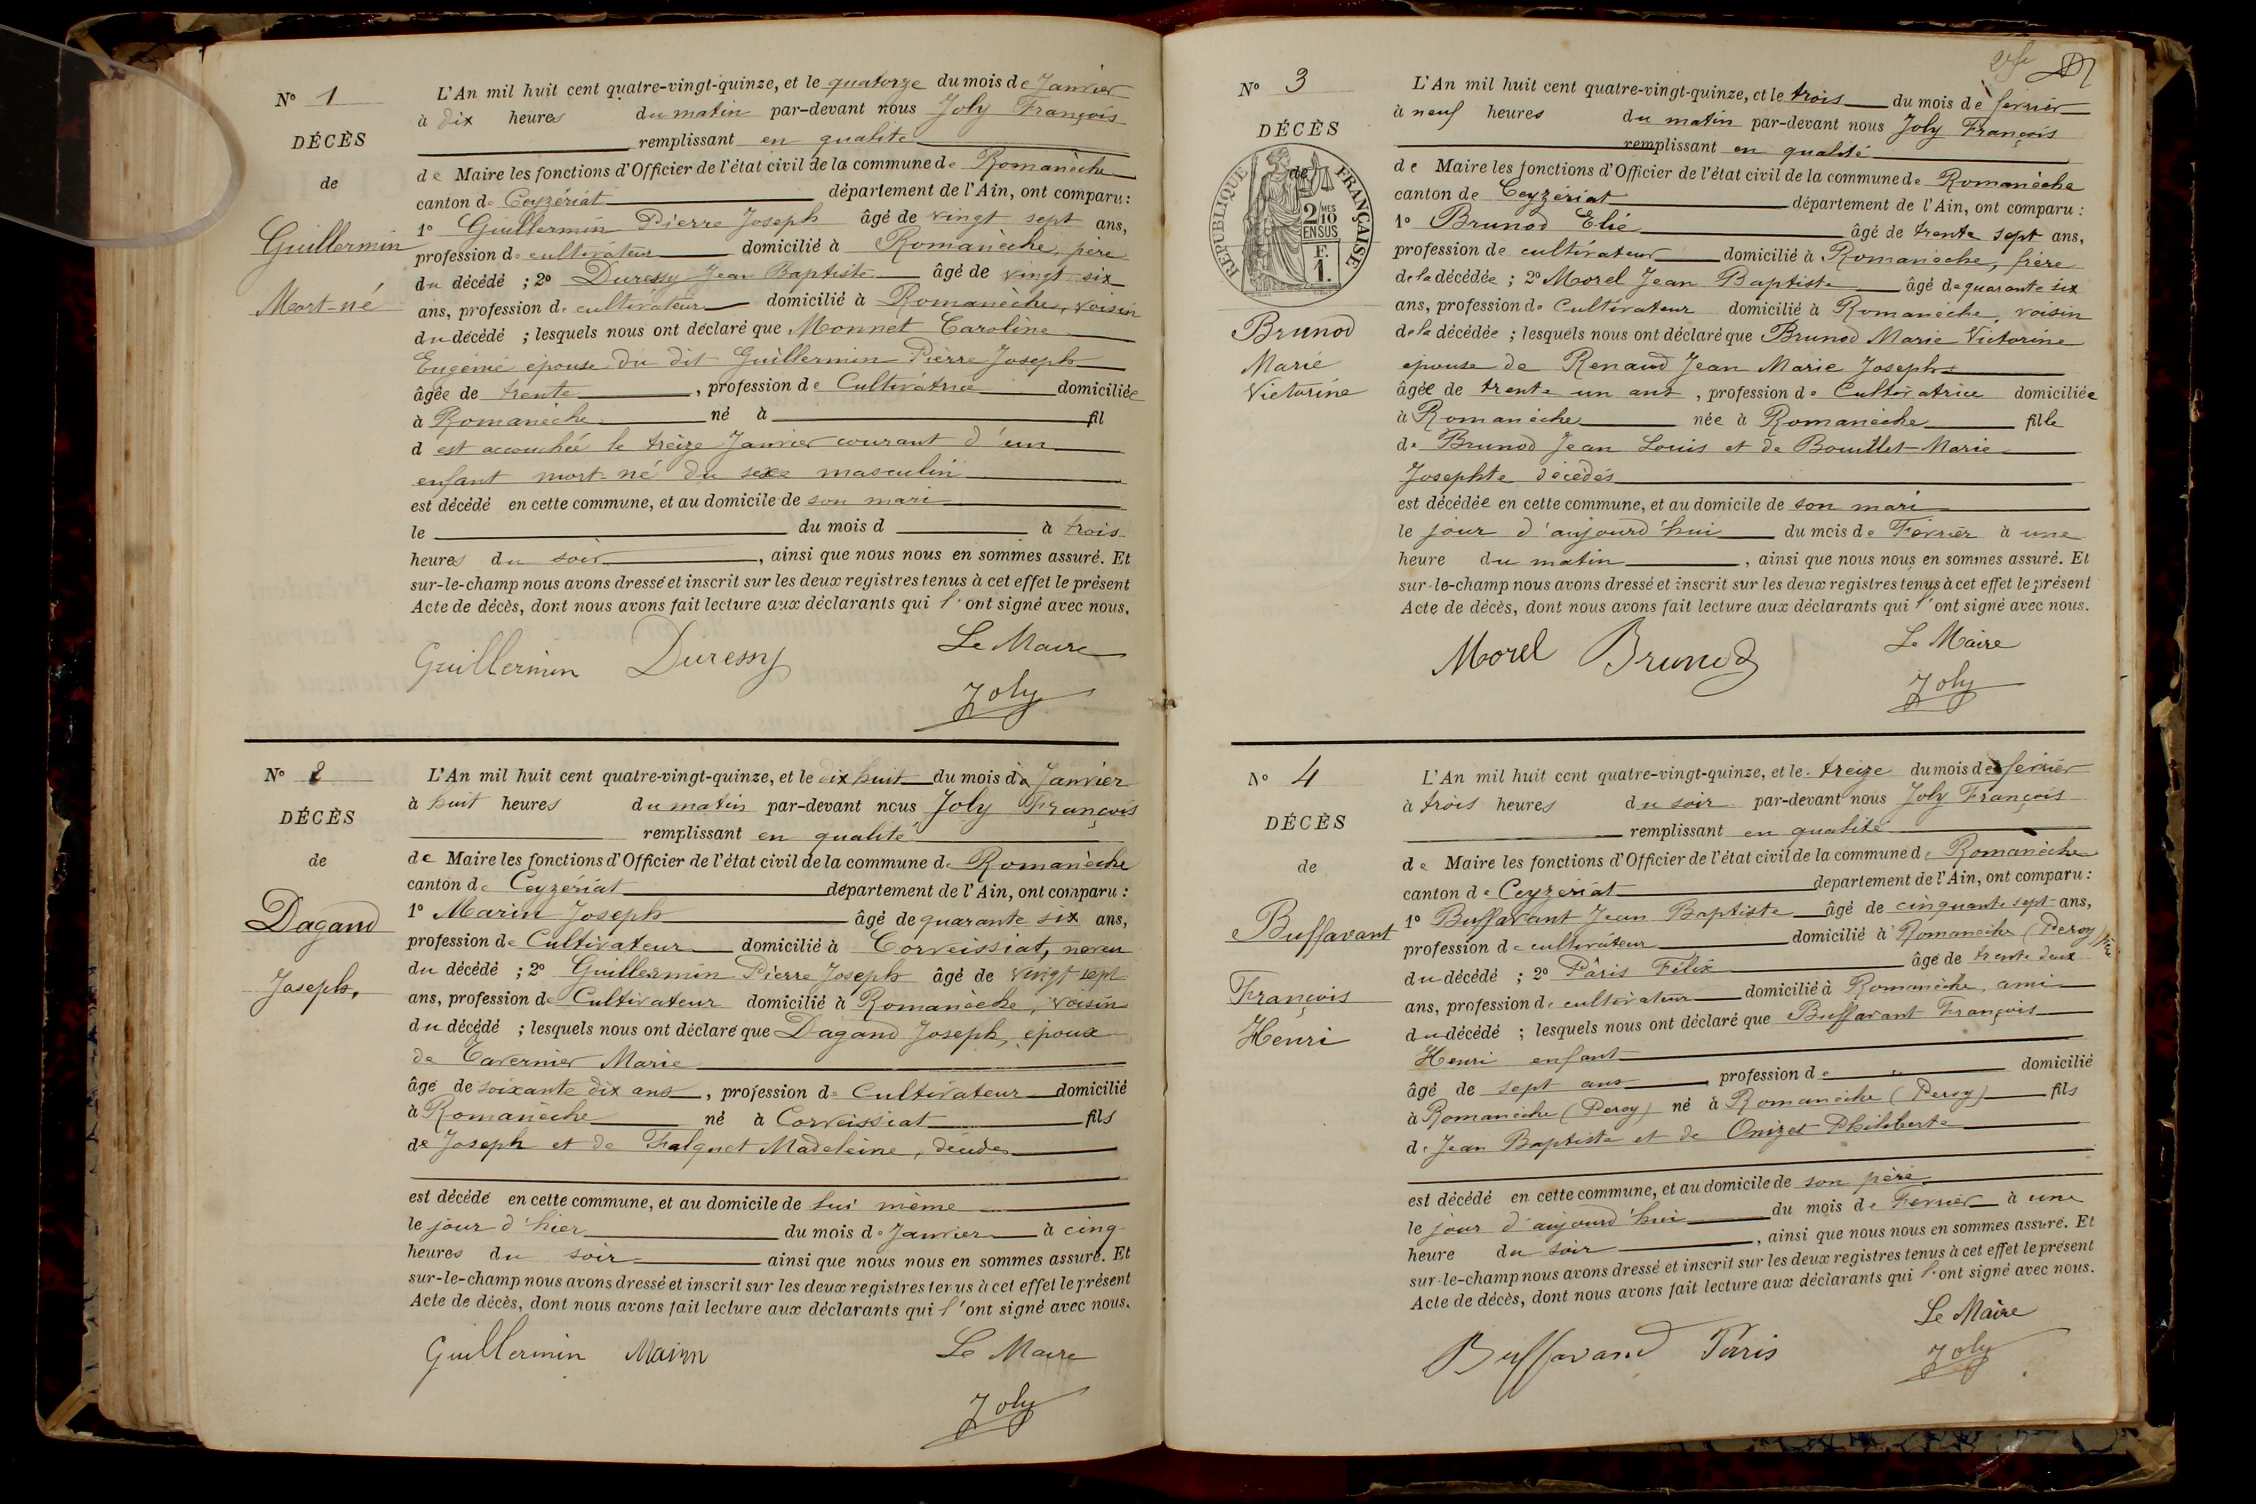 N° 1
DÉCÈS
de
Guillermin
Mort-né
L'An mil huit cent quatre-vingt-quinze, et le quatorze du mois de Janvier
à dix heures du matin par-devant nous Joly François
remplissant en qualité
de Maire les fonctions d'Officier de l'état civil de la commune de Romanèche
canton de Ceyzériat département de l'Ain, ont comparu :
1° Guillermin Pierre Joseph âgé de vingt sept ans,
profession de cultivateur domicilié à Romanèche, père
du décédé ; 2° Duressy Jean Baptiste âgé de vingt six
ans, profession de cultivateur domicilié à Romanèche, voisin
du décédé ; lesquels nous ont déclaré que Monnet Caroline
Eugénie épouse du dit Guillermin Pierre Joseph
âgée de trente , profession de Cultivatrice domiciliée
à Romanèche né à fil
d est accouchée le treize Janvier courant d'un
enfant mort-né du sexe masculin
est décédé en cette commune, et au domicile de son mari
le du mois d à trois
heures du soir , ainsi que nous nous en sommes assuré. Et
sur-le-champ nous avons dressé et inscrit sur les deux registres tenus à cet effet le présent
Acte de décès, dont nous avons fait lecture aux déclarants qui l'ont signé avec nous.
Guillermin Duressy Le Maire
Joly
N° 2
DÉCÈS
de
Dagand
Joseph,
L'An mil huit cent quatre-vingt-quinze, et le dix huit du mois de Janvier
à huit heures du matin par-devant nous Joly François
remplissant en qualité
de Maire les fonctions d'Officier de l'état civil de la commune de Romanèche
canton de Ceyzériat département de l'Ain, ont comparu :
1° Marin Joseph âgé de quarante six ans,
profession de Cultivateur domicilié à Corveissiat, neveu
du décédé ; 2° Guillermin Pierre Joseph âgé de vingt sept
ans, profession de Cultivateur domicilié à Romanèche, voisin
du décédé ; lesquels nous ont déclaré que Dagand Joseph, époux
de Tavernier Marie
âgé de soixante dix ans , profession de Cultivateur domicilié
à Romanèche né à Corveissiat fils
de Joseph et de Falquet Madeleine, décédés
est décédé en cette commune, et au domicile de lui même
le jour d'hier du mois de Janvier à cinq
heures du soir ainsi que nous nous en sommes assuré. Et
sur-le-champ nous avons dressé et inscrit sur les deux registres tenus à cet effet le présent
Acte de décès, dont nous avons fait lecture aux déclarants qui l'ont signé avec nous.
Guillermin Marin Le Maire
Joly
N° 3
DÉCÈS
de
RÉPUBLIQUE FRANÇAISE
2/10 MES
EN SUS
F.
1.
Brunod
Marie
Victorine
L'An mil huit cent quatre-vingt-quinze, et le trois du mois de février
à neuf heures du matin par-devant nous Joly François
remplissant en qualité
de Maire les fonctions d'Officier de l'état civil de la commune de Romanèche
canton de Ceyzériat département de l'Ain, ont comparu :
1° Brunod Elie âgé de trente sept ans,
profession de cultivateur domicilié à Romanèche, frère
de la décédée ; 2° Morel Jean Baptiste âgé de quarante six
ans, profession de Cultivateur domicilié à Romanèche, voisin
de la décédée ; lesquels nous ont déclaré que Brunod Marie Victorine
épouse de Renaud Jean Marie Joseph
âgée de trente un ans , profession de Cultivatrice domiciliée
à Romanèche née à Romanèche fille
de Brunod Jean Louis et de Bouillet Marie
Josephte décédés
est décédée en cette commune, et au domicile de son mari
le jour d'aujourd'hui du mois de Février à une
heure du matin , ainsi que nous nous en sommes assuré. Et
sur-le-champ nous avons dressé et inscrit sur les deux registres tenus à cet effet le présent
Acte de décès, dont nous avons fait lecture aux déclarants qui l'ont signé avec nous.
Morel Brunod Le Maire
Joly
N° 4
DÉCÈS
de
Buffavant
François
Henri
L'An mil huit cent quatre-vingt-quinze, et le treize du mois de février
à trois heures du soir par-devant nous Joly François
remplissant en qualité
de Maire les fonctions d'Officier de l'état civil de la commune de Romanèche
canton de Ceyzériat département de l'Ain, ont comparu :
1° Buffavant Jean Baptiste âgé de cinquante sept ans,
profession de cultivateur domicilié à Romanèche (Deroy) père
du décédé ; 2° Pâris Félix âgé de trente deux
ans, profession de cultivateur domicilié à Romanèche, ami
du décédé ; lesquels nous ont déclaré que Buffavant François
Henri enfant
âgé de sept ans , profession de " domicilié
à Romanèche (Deroy) né à Romanèche (Deroy) fils
de Jean Baptiste et de Onizet Philiberte
est décédé en cette commune, et au domicile de son père
le jour d'aujourd'hui du mois de Février à une
heure du soir , ainsi que nous nous en sommes assuré. Et
sur-le-champ nous avons dressé et inscrit sur les deux registres tenus à cet effet le présent
Acte de décès, dont nous avons fait lecture aux déclarants qui l'ont signé avec nous.
Buffavand Pâris Le Maire
Joly